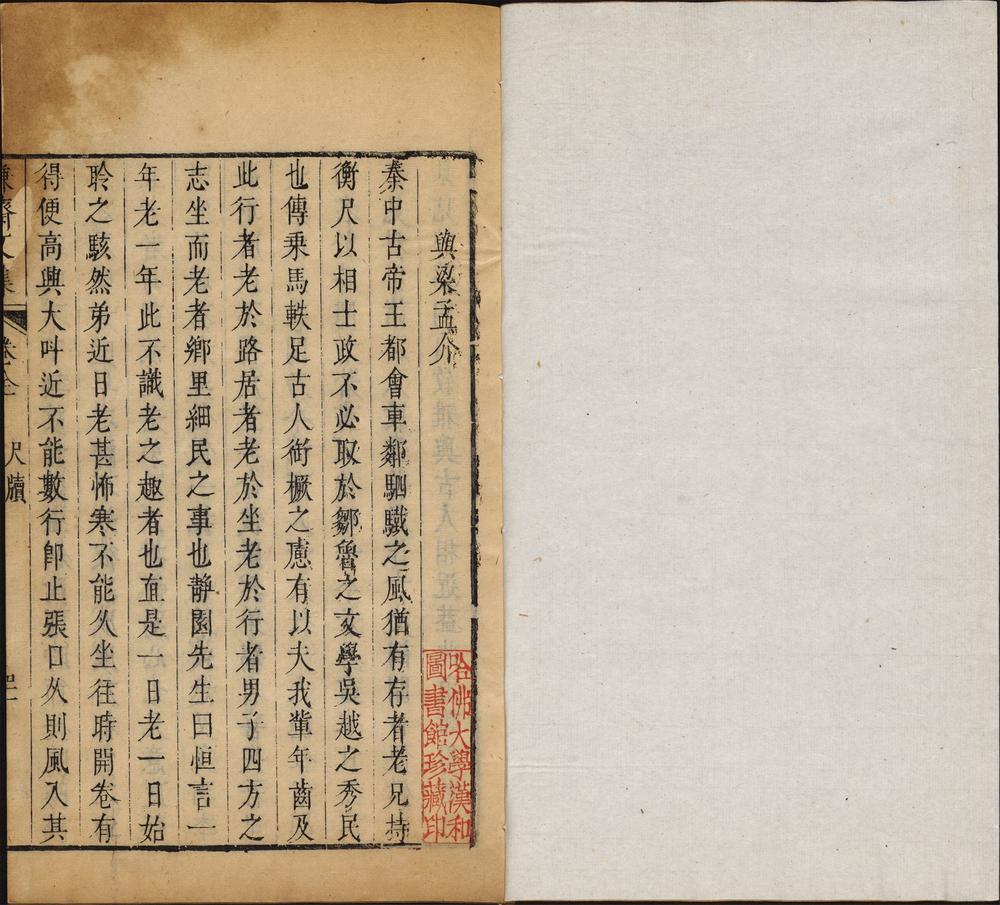 與梁孟介
秦中古帝王都會車鄰駟驖之風猶有存者老兄持
衡尺以相士政不必取於鄒魯之文學吳越之秀民
也傳乘馬軼足古人銜橛之慮有以夫我輩年齒及
此行者老於路居者老於坐老於行者男子四方之
志坐而老者鄉里細民之事也靜園先生曰恒言一
年老一年此不識老之趣者也直是一日老一日始
聆之駭然弟近日老甚怖寒不能久坐往時開卷有
得便高興大呌近不能數行卽止張口久則風入其
齋文集 卷全 尺牘
哈佛大學漢和
圖書館珍藏印